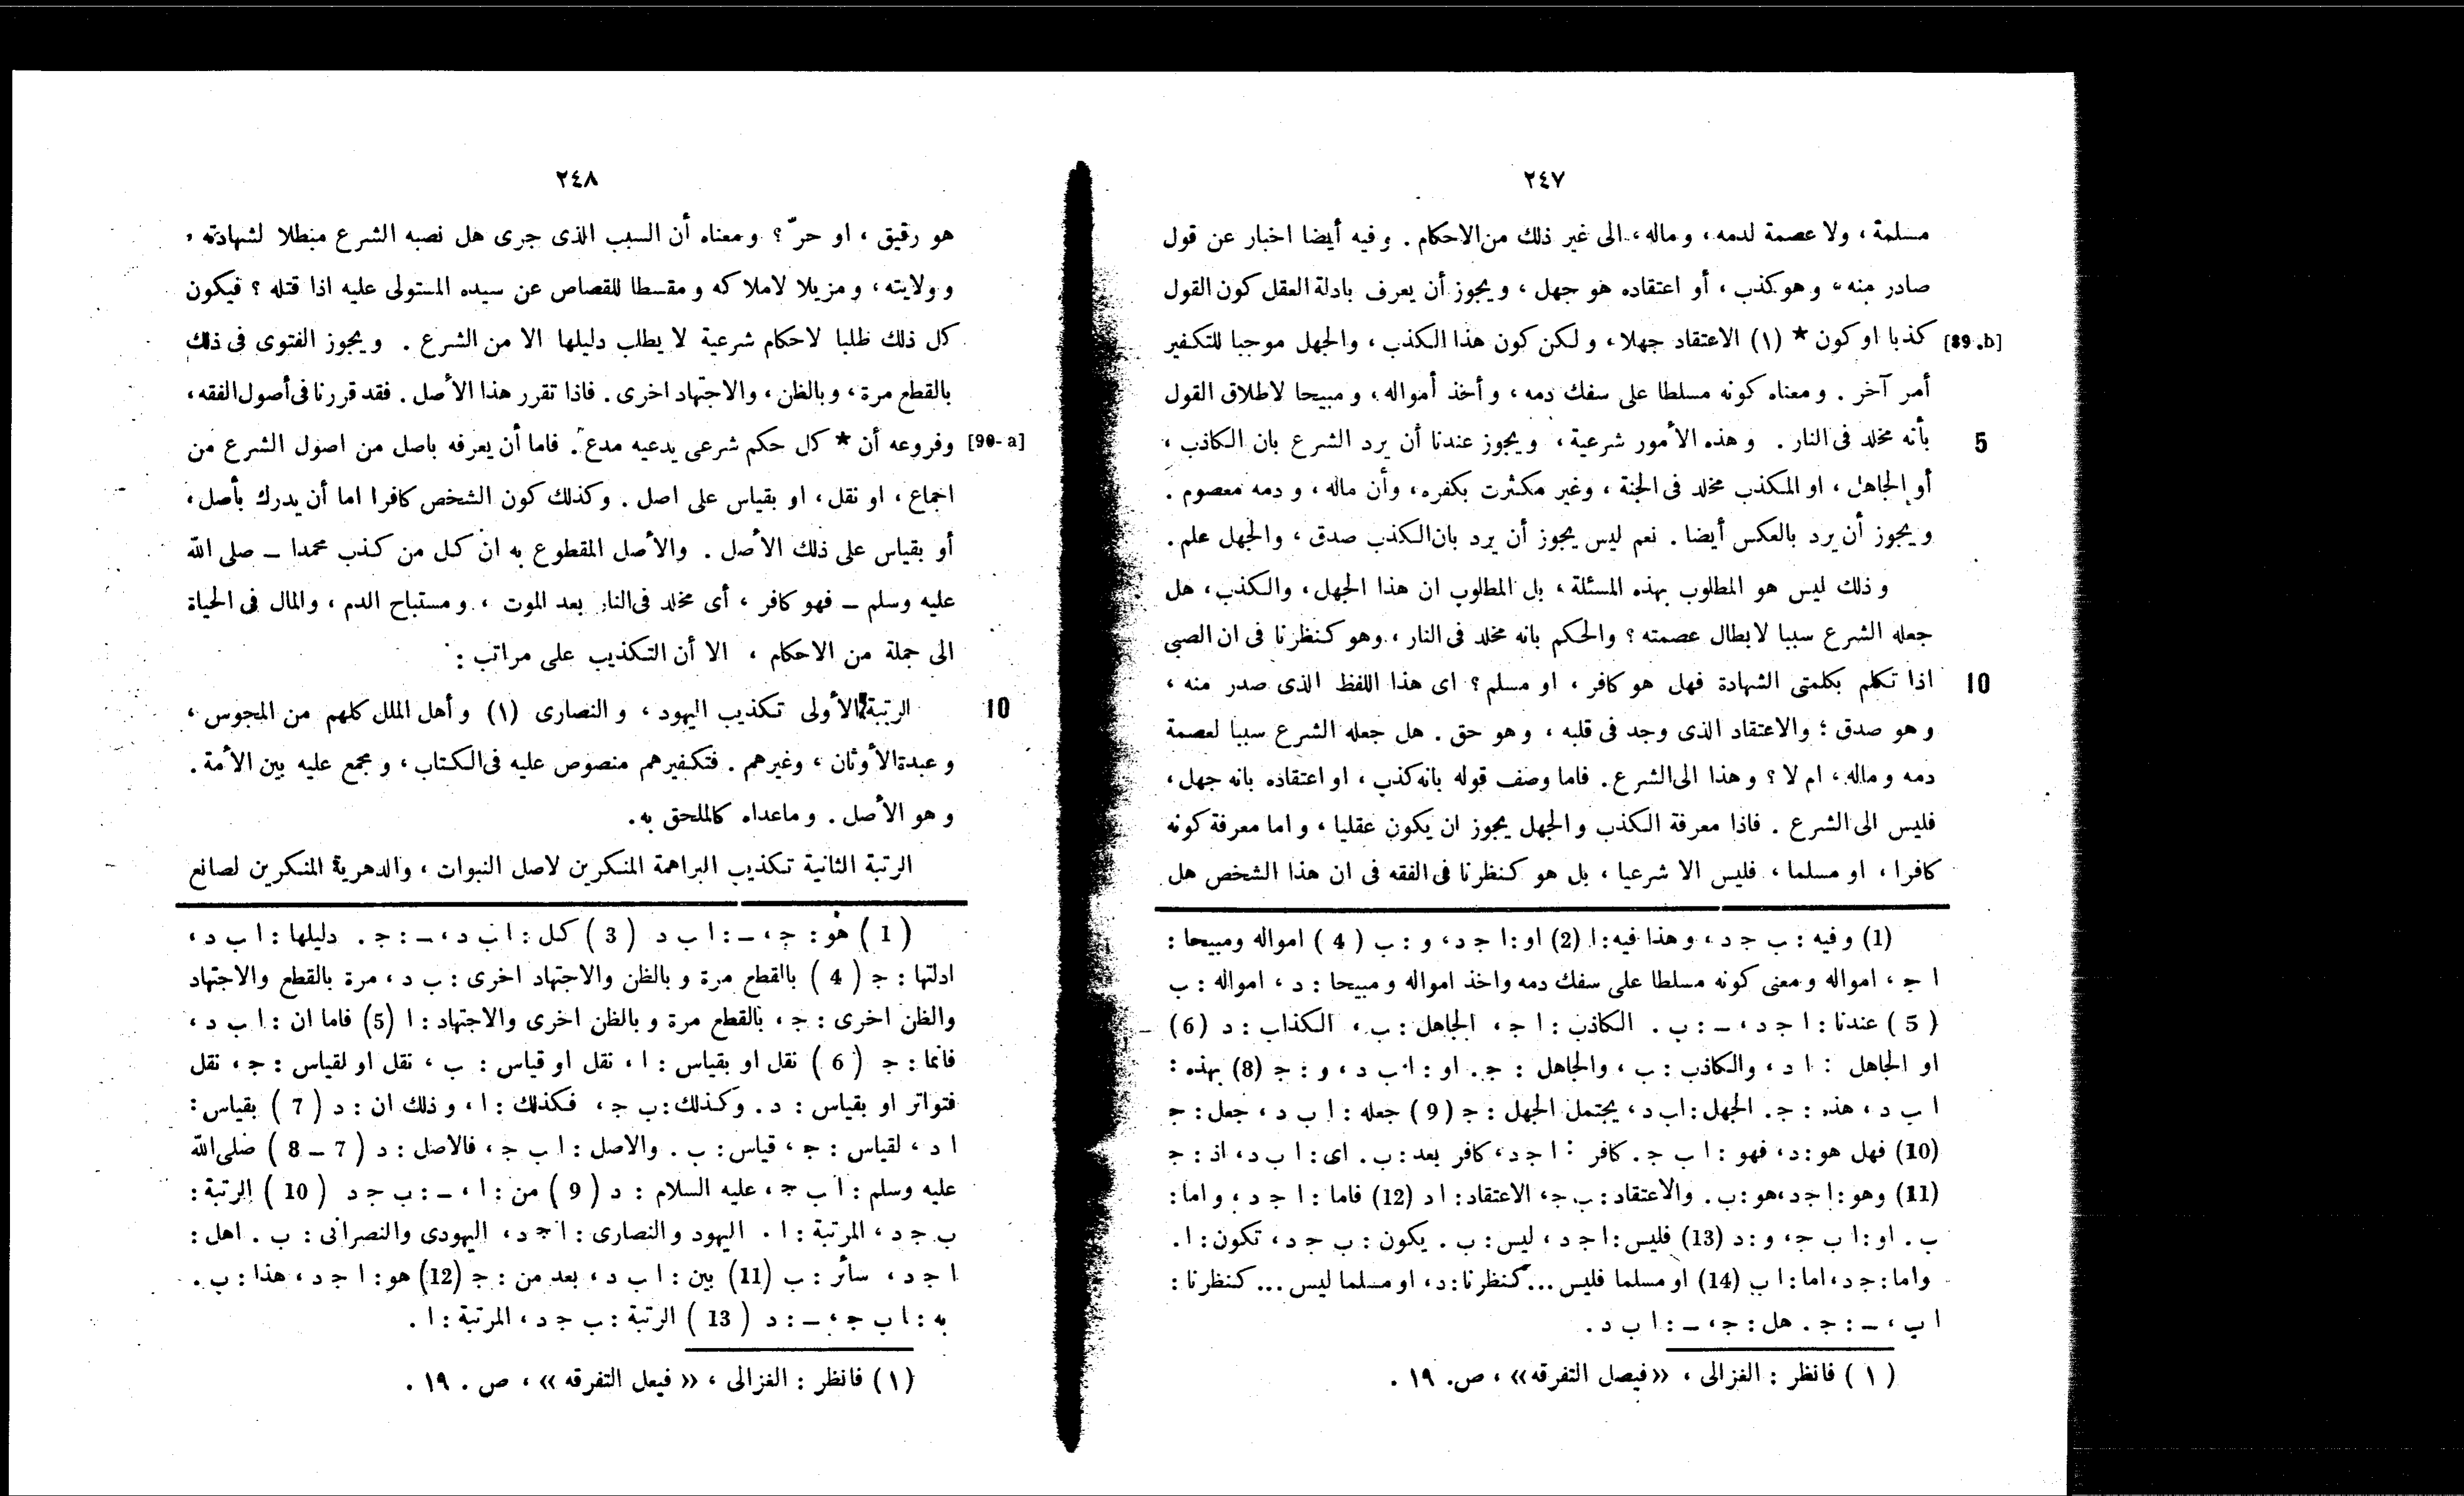 ٢٤٧
مسلمة ، ولا عصمة لدمه ، وماله ، الى غير ذلك من الاحكام . وفيه أيضا اخبار عن قول
صادر منه ، وهو كذب ، أو اعتقاده هو جهل ، ويجوز أن يعرف بادلة العقل كون القول
[89.b] كذبا او كون * (١) الاعتقاد جهلا ، ولكن كون هذا الكذب ، والجهل موجبا للتكفير
أمر آخر . ومعناه كونه مسلطا على سفك دمه ، وأخذ أمواله ، ومبيحا لاطلاق القول
5 بأنه مخلد فى النار . وهذه الأمور شرعية ، ويجوز عندنا أن يرد الشرع بان الكاذب ،
أو الجاهل ، او المكذب مخلد فى الجنة ، وغير مكترث بكفره ، وأن ماله ، ودمه معصوم .
ويجوز أن يرد بالعكس أيضا . نعم ليس يجوز أن يرد بان الكذب صدق ، والجهل علم .
وذلك ليس هو المطلوب بهذه المسئلة ، بل المطلوب ان هذا الجهل ، والكذب ، هل
جعله الشرع سببا لابطال عصمته ؟ والحكم بانه مخلد فى النار ، وهو كنظرنا فى ان الصبى
10 اذا تكلم بكلمتى الشهادة فهل هو كافر ، او مسلم ؟ اى هذا اللفظ الذى صدر منه ،
وهو صدق ؛ والاعتقاد الذى وجد فى قلبه ، وهو حق . هل جعله الشرع سببا لعصمة
دمه وماله ، ام لا ؟ وهذا الى الشرع . فاما وصف قوله بانه كذب ، او اعتقاده بانه جهل ،
فليس الى الشرع . فاذا معرفة الكذب والجهل يجوز ان يكون عقليا ، واما معرفة كونه
كافرا ، او مسلما ، فليس الا شرعيا ، بل هو كنظرنا فى الفقه فى ان هذا الشخص هل
(1) وفيه : ب ج د ، وهذا فيه : ا (2) او : ا ج د ، و : ب ( 4 ) امواله ومبيحا :
ا ج ، امواله ومعنى كونه مسلطا على سفك دمه واخذ امواله ومبيحا : د ، امواله : ب
( 5 ) عندنا : ا ج د ، ـ : ب . الكاذب : ا ج ، الجاهل : ب ، الكذاب : د (6)
او الجاهل : ا د ، والكاذب : ب ، والجاهل : ج . او : ا ب د ، و : ج (8) بهذه :
ا ب د ، هذه : ج . الجهل : ا ب د ، يحتمل الجهل : ج ( 9 ) جعله : ا ب د ، جعل : ج
(10) فهل هو : د ، فهو : ا ب ج . كافر : ا ج د ، كافر بعد : ب . اى : ا ب د ، اذ : ج
(11) وهو : ا ج د ، هو : ب . والاعتقاد : ب ج ، الاعتقاد : ا د (12) فاما : ا ج د ، واما :
ب . او : ا ب ج ، و : د (13) فليس : ا ج د ، ليس : ب . يكون : ب ج د ، تكون : ا .
واما : ج د ، اما : ا ب (14) او مسلما فليس ... كنظرنا : د ، او مسلما ليس ... كنظرنا :
ا ب ، ـ : ج . هل : ج ، ـ : ا ب د .
( ١ ) فانظر : الغزالى ، «فيصل التفرقه» ، ص . ١٩ .
٢٤٨
هو رقيق ، او حرّ ؟ ومعناه أن السبب الذى جرى هل نصبه الشرع مبطلا لشهادته ،
وولايته ، ومزيلا لاملاكه ومقسطا للقصاص عن سيده المستولى عليه اذا قتله ؟ فيكون
كل ذلك طلبا لاحكام شرعية لا يطلب دليلها الا من الشرع . ويجوز الفتوى فى ذلك
بالقطع مرة ، وبالظن ، والاجتهاد اخرى . فاذا تقرر هذا الأصل . فقد قررنا فى أصول الفقه ،
[90-a] وفروعه أن * كل حكم شرعى يدعيه مدع . فاما أن يعرفه باصل من اصول الشرع من
اجماع ، او نقل ، او بقياس على اصل . وكذلك كون الشخص كافرا اما أن يدرك بأصل ،
أو بقياس على ذلك الأصل . والأصل المقطوع به ان كل من كذب محمدا ـ صلى الله
عليه وسلم ـ فهو كافر ، أى مخلد فى النار بعد الموت ، ومستباح الدم ، والمال فى الحياة
الى جملة من الاحكام ، الا أن التكذيب على مراتب :
10 الرتبة الأولى تكذيب اليهود ، والنصارى (١) وأهل الملل كلهم من المجوس ،
وعبدة الأوثان ، وغيرهم . فتكفيرهم منصوص عليه فى الكتاب ، ومجمع عليه بين الأمة .
وهو الأصل . وماعداه كالملحق به .
الرتبة الثانية تكذيب البراهمة المنكرين لاصل النبوات ، والدهرية المنكرين لصانع
( 1 ) هو : ج ، ـ : ا ب د ( 3 ) كل : ا ب د ، ـ : ج . دليلها : ا ب د ،
ادلتها : ج ( 4 ) بالقطع مرة وبالظن والاجتهاد اخرى : ب د ، مرة بالقطع والاجتهاد
والظن اخرى : ج ، بالقطع مرة وبالظن اخرى والاجتهاد : ا (5) فاما ان : ا ب د ،
فانما : ج ( 6 ) نقل او بقياس : ا ، نقل او قياس : ب ، نقل او لقياس : ج ، نقل
فتواتر او بقياس : د . وكذلك : ب ج ، فكذلك : ا ، وذلك ان : د ( 7 ) بقياس :
ا د ، لقياس : ج ، قياس : ب . والاصل : ا ب ج ، فالاصل : د ( 7 ـ 8 ) صلى الله
عليه وسلم : ا ب ج ، عليه السلام : د ( 9 ) من : ا ، ـ : ب ج د ( 10 ) الرتبة :
ب ج د ، المرتبة : ا . اليهود والنصارى : ا ج د ، اليهودى والنصرانى : ب . اهل :
ا ج د ، سائر : ب (11) بين : ا ب د ، بعد من : ج (12) هو : ا ج د ، هذا : ب .
به : ا ب ج ، ـ : د ( 13 ) الرتبة : ب ج د ، المرتبة : ا .
( ١ ) فانظر : الغزالى ، « فيعل التفرقه » ، ص . ١٩ .